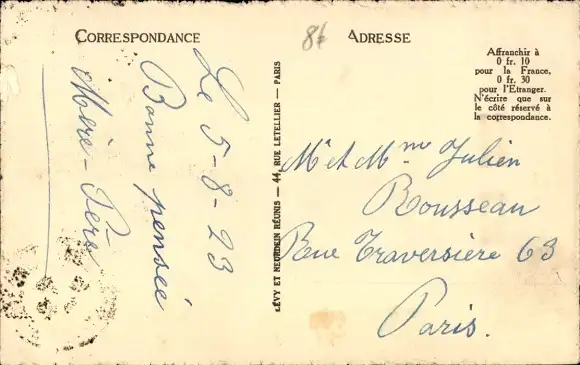 CORRESPONDANCE
ADRESSE
Affranchir à
0 fr. 10
pour la France,
0 fr. 30
pour l'Etranger.
N'écrire que sur
le côté réservé à
la correspondance.
Le 5-8-23
Bonne pensée
Mère-Père
LÉVY ET NEURDEIN RÉUNIS — 44, RUE LETELLIER — PARIS
Mr et Mme Julien
Rousseau
Rue Traversière 63
Paris.